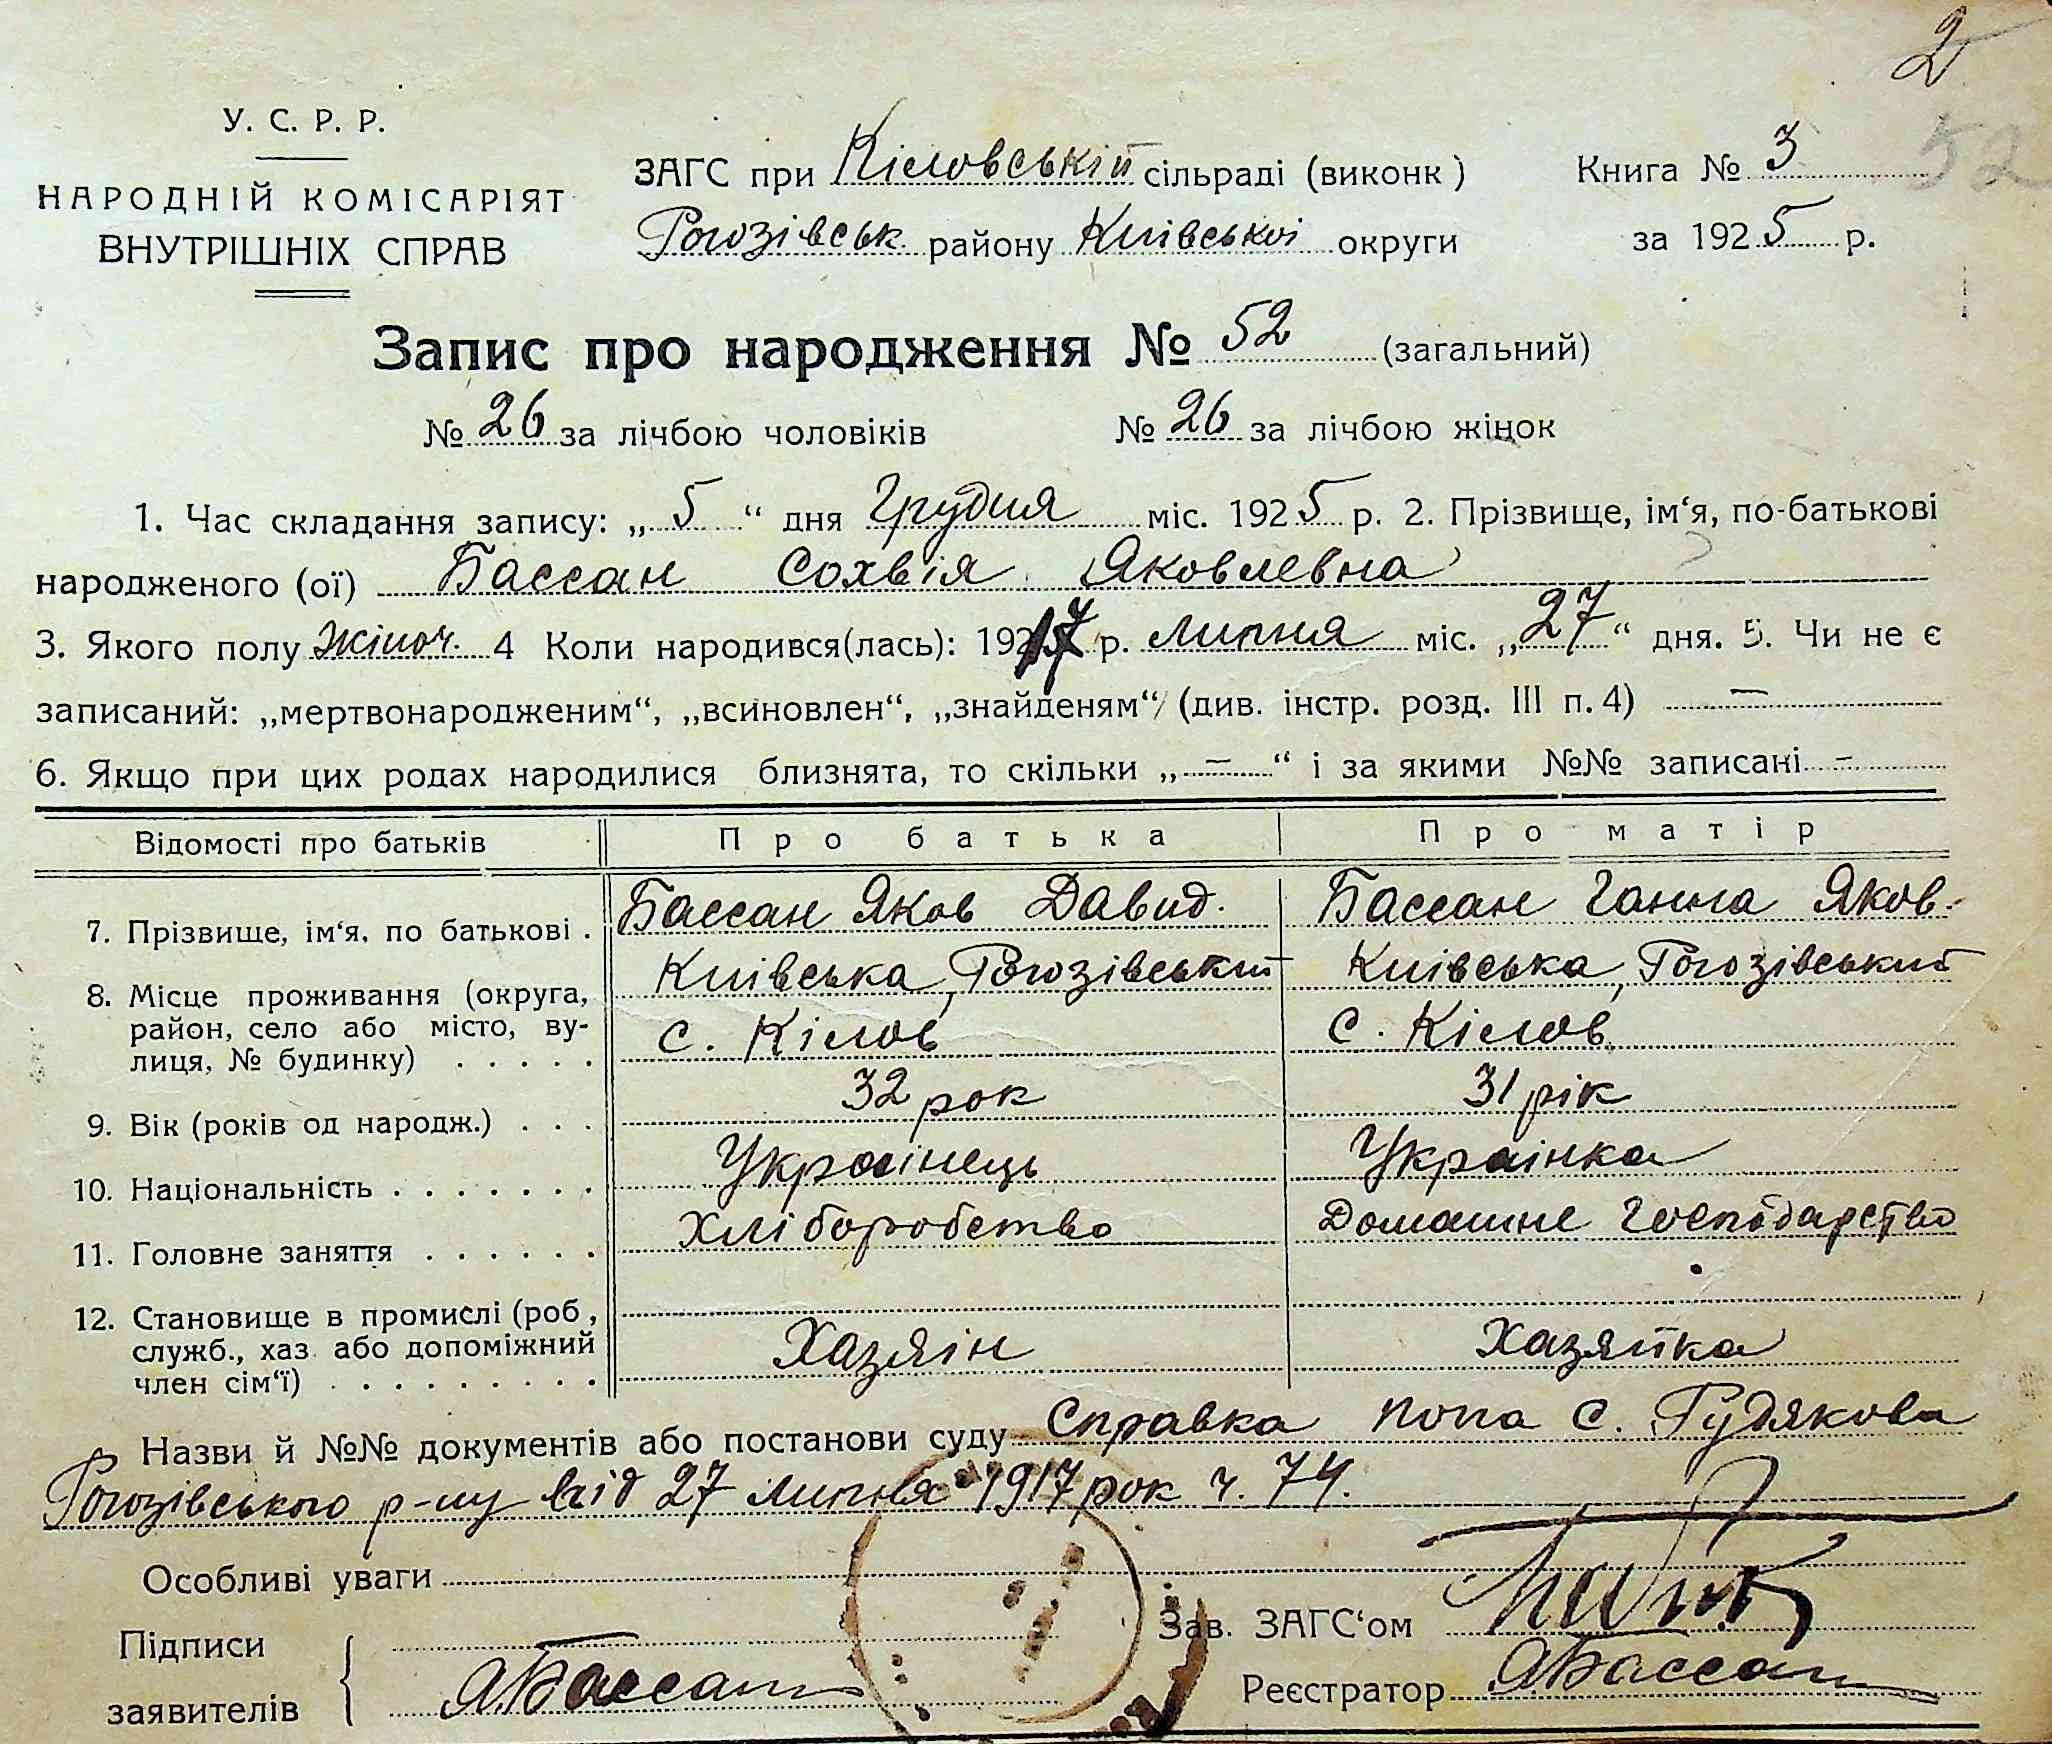 2
52
У. С. Р. Р.
НАРОДНІЙ КОМІСАРІЯТ
ВНУТРІШНІХ СПРАВ
ЗАГС при Кіловській сільраді (виконк )
Рогозівськ. району Київської округи
Книга № 3
за 1925 р.
Запис про народження № 52 (загальний)
№ 26 за лічбою чоловіків № 26 за лічбою жінок
1. Час складання запису: „ 5 “ дня Грудня міс. 1925 р. 2. Прізвище, ім‘я, по-батькові
народженого (ої) Бассан Сохвія Яковлевна
3. Якого полу Жіноч. 4 Коли народився(лась): 1917 р. липня міс. „27“ дня. 5. Чи не є
записаний: „мертвонародженим“, „всиновлен“, „знайденям“ (див. інстр. розд. III п. 4) —
6. Якщо при цих родах народилися близнята, то скільки „ — “ і за якими №№ записані -
Відомості про батьків Про батька Про матір
7. Прізвище, ім‘я, по батькові . Бассан Яков Давид. Бассан Ганна Яков.
8. Місце проживання (округа, Київська, Рогозівський Київська, Рогозівський
район, село або місто, ву- с. Кілов с. Кілов
лиця, № будинку) . . . . .
9. Вік (років од народж.) . . . 32 рок 31 рік
10. Національність . . . . . . . Українець Українка
11. Головне заняття . . . . . . Хліборобство Домашнє Господарство
12. Становище в промислі (роб ,
служб., хаз. або допоміжний Хазяін Хазяйка
член сім‘ї) . . . . . . . . .
Назви й №№ документів або постанови суду Справка попа с. Гудякова
Рогозівського р-ну від 27 липня 1917 рок ч. 74.
Особливі уваги
Підписи
заявителів Я Бассан
Зав. ЗАГС‘ом
Реєстратор Я Бассан